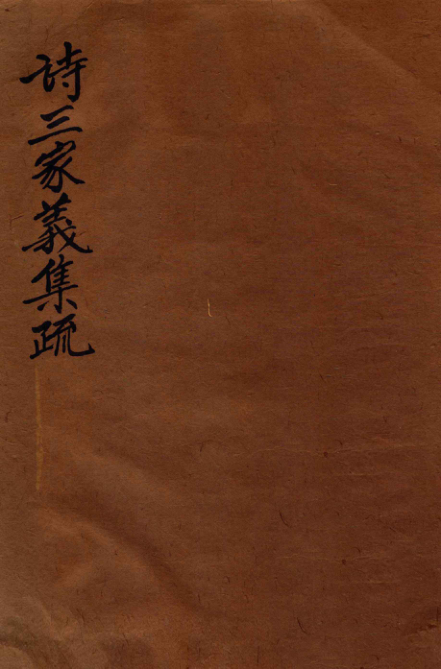 詩三家義集疏